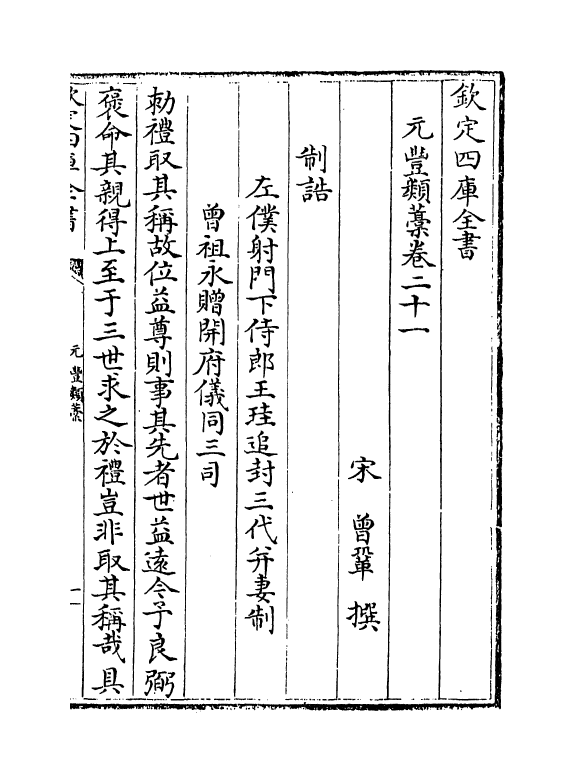 欽定四庫全書
元豐類藁卷二十一
宋 曾鞏 撰
制誥
左僕射門下侍郎王珪追封三代并妻制
曾祖永贈開府儀同三司
勅禮取其稱故位益尊則事其先者世益逺令予良弼
褒命其親得上至于三世求之於禮豈非取其稱哉具
欽定四庫全書
元豐類藁
一